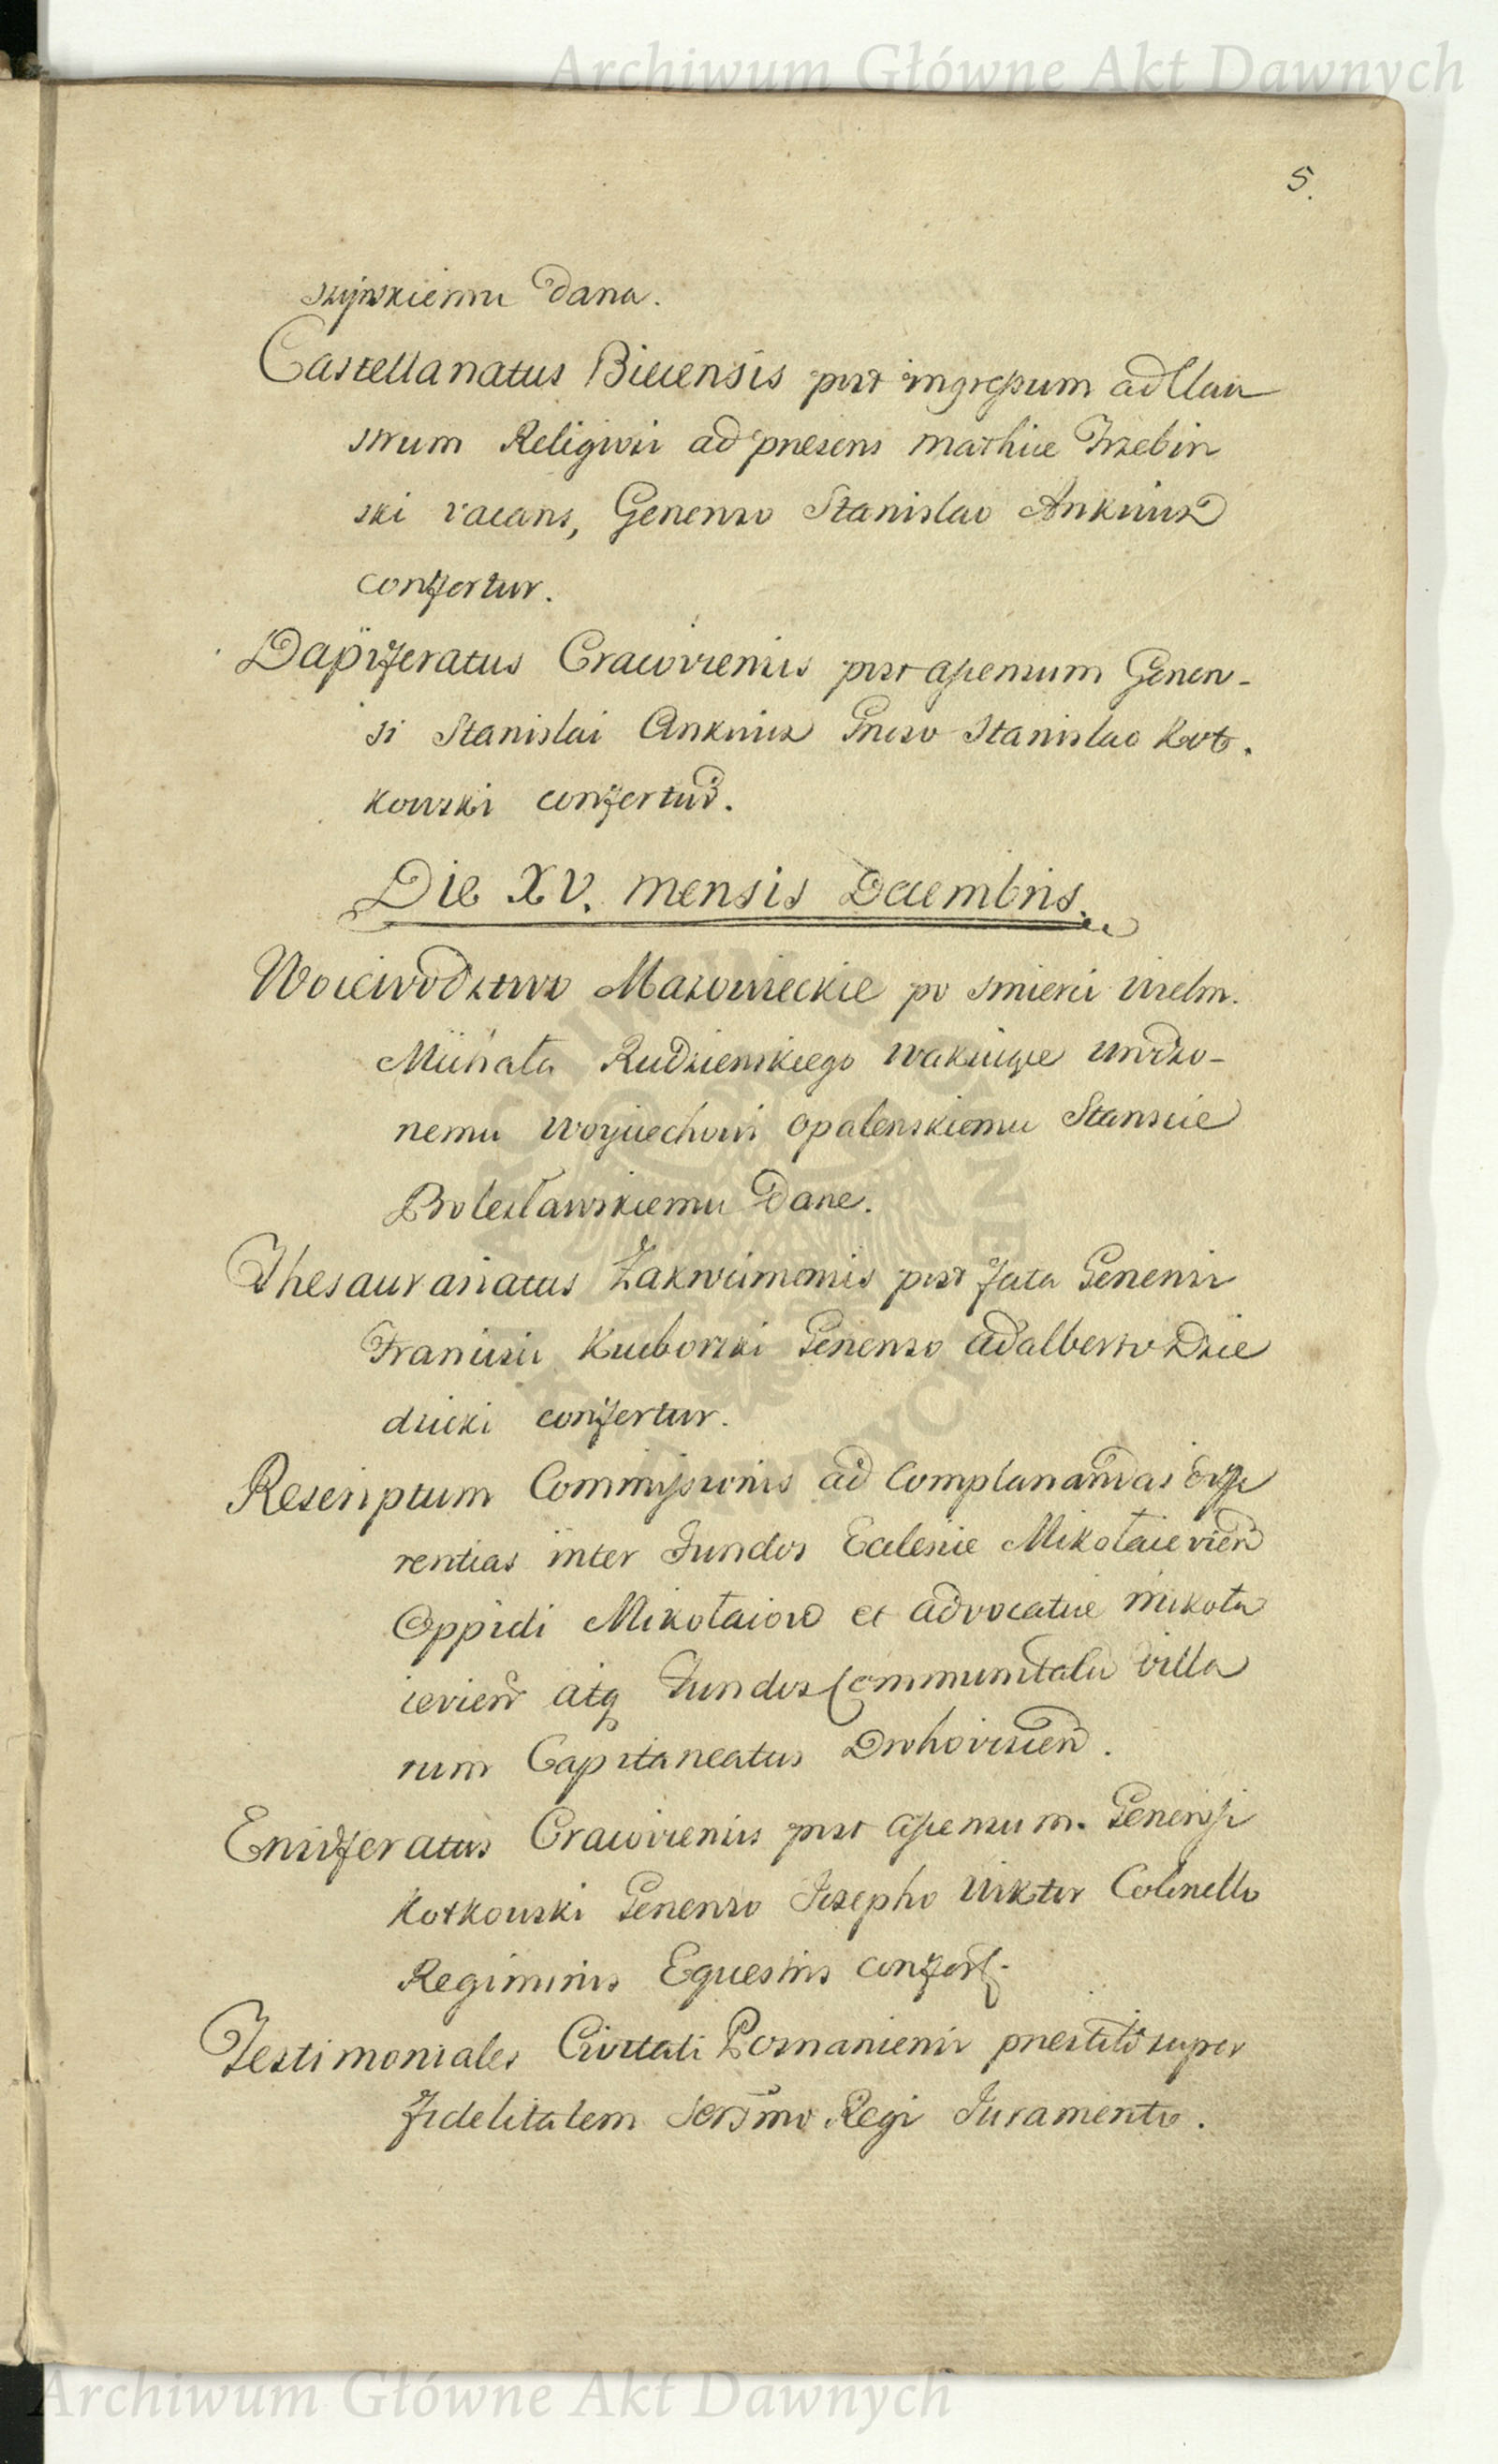 Archiwum Główne Akt Dawnych
5.
szynskiemu dana.
Castellanatus Biecensis post ingressum ad Clau
strum Religiosi ad presens Mathiæ Trzebin
ski vacans, Generoso Stanislao Ankwicz
confertur.
Dapiferatus Cracoviensis post ascensum Genero-
si Stanislai Ankwicz Gneroso Stanislao Kot-
kowski confertur.
Die XV. mensis Decembris.
Woiewodztwo Mazowieckie po smierci Wielm.
Michała Rudzienskiego wakuiące Urodzo-
nemu Woyciechowi Opalenskiemu Staroscie
Bolesławskiemu dane.
Thesauraratus Zakroczimensis post fata Generosi
Francisci Kuuborski Generoso Adalberto Dzie
dzicki confertur.
Rescriptum Commissionis ad Complanandas diffe
rentias inter Fundos Ecclesiæ Mikołaievien
Oppidi Mikołaiow et advocatiæ Mikoła
ievien atq Fundos Communitatu Villa
rum Capitaneatus Drohovicien.
Ensiferatus Cracoviensis post ascensum Generosi
Kotkowski Generoso Josepho Wiktor Colonello
Regiminis Equestris confert.
Testimoniales Civitati Posnaniensi præstiti super
fidelitatem Sermo Regi Juramento.
ARCHIWUM GŁÓWNE AKT DAWNYCH
Archiwum Główne Akt Dawnych